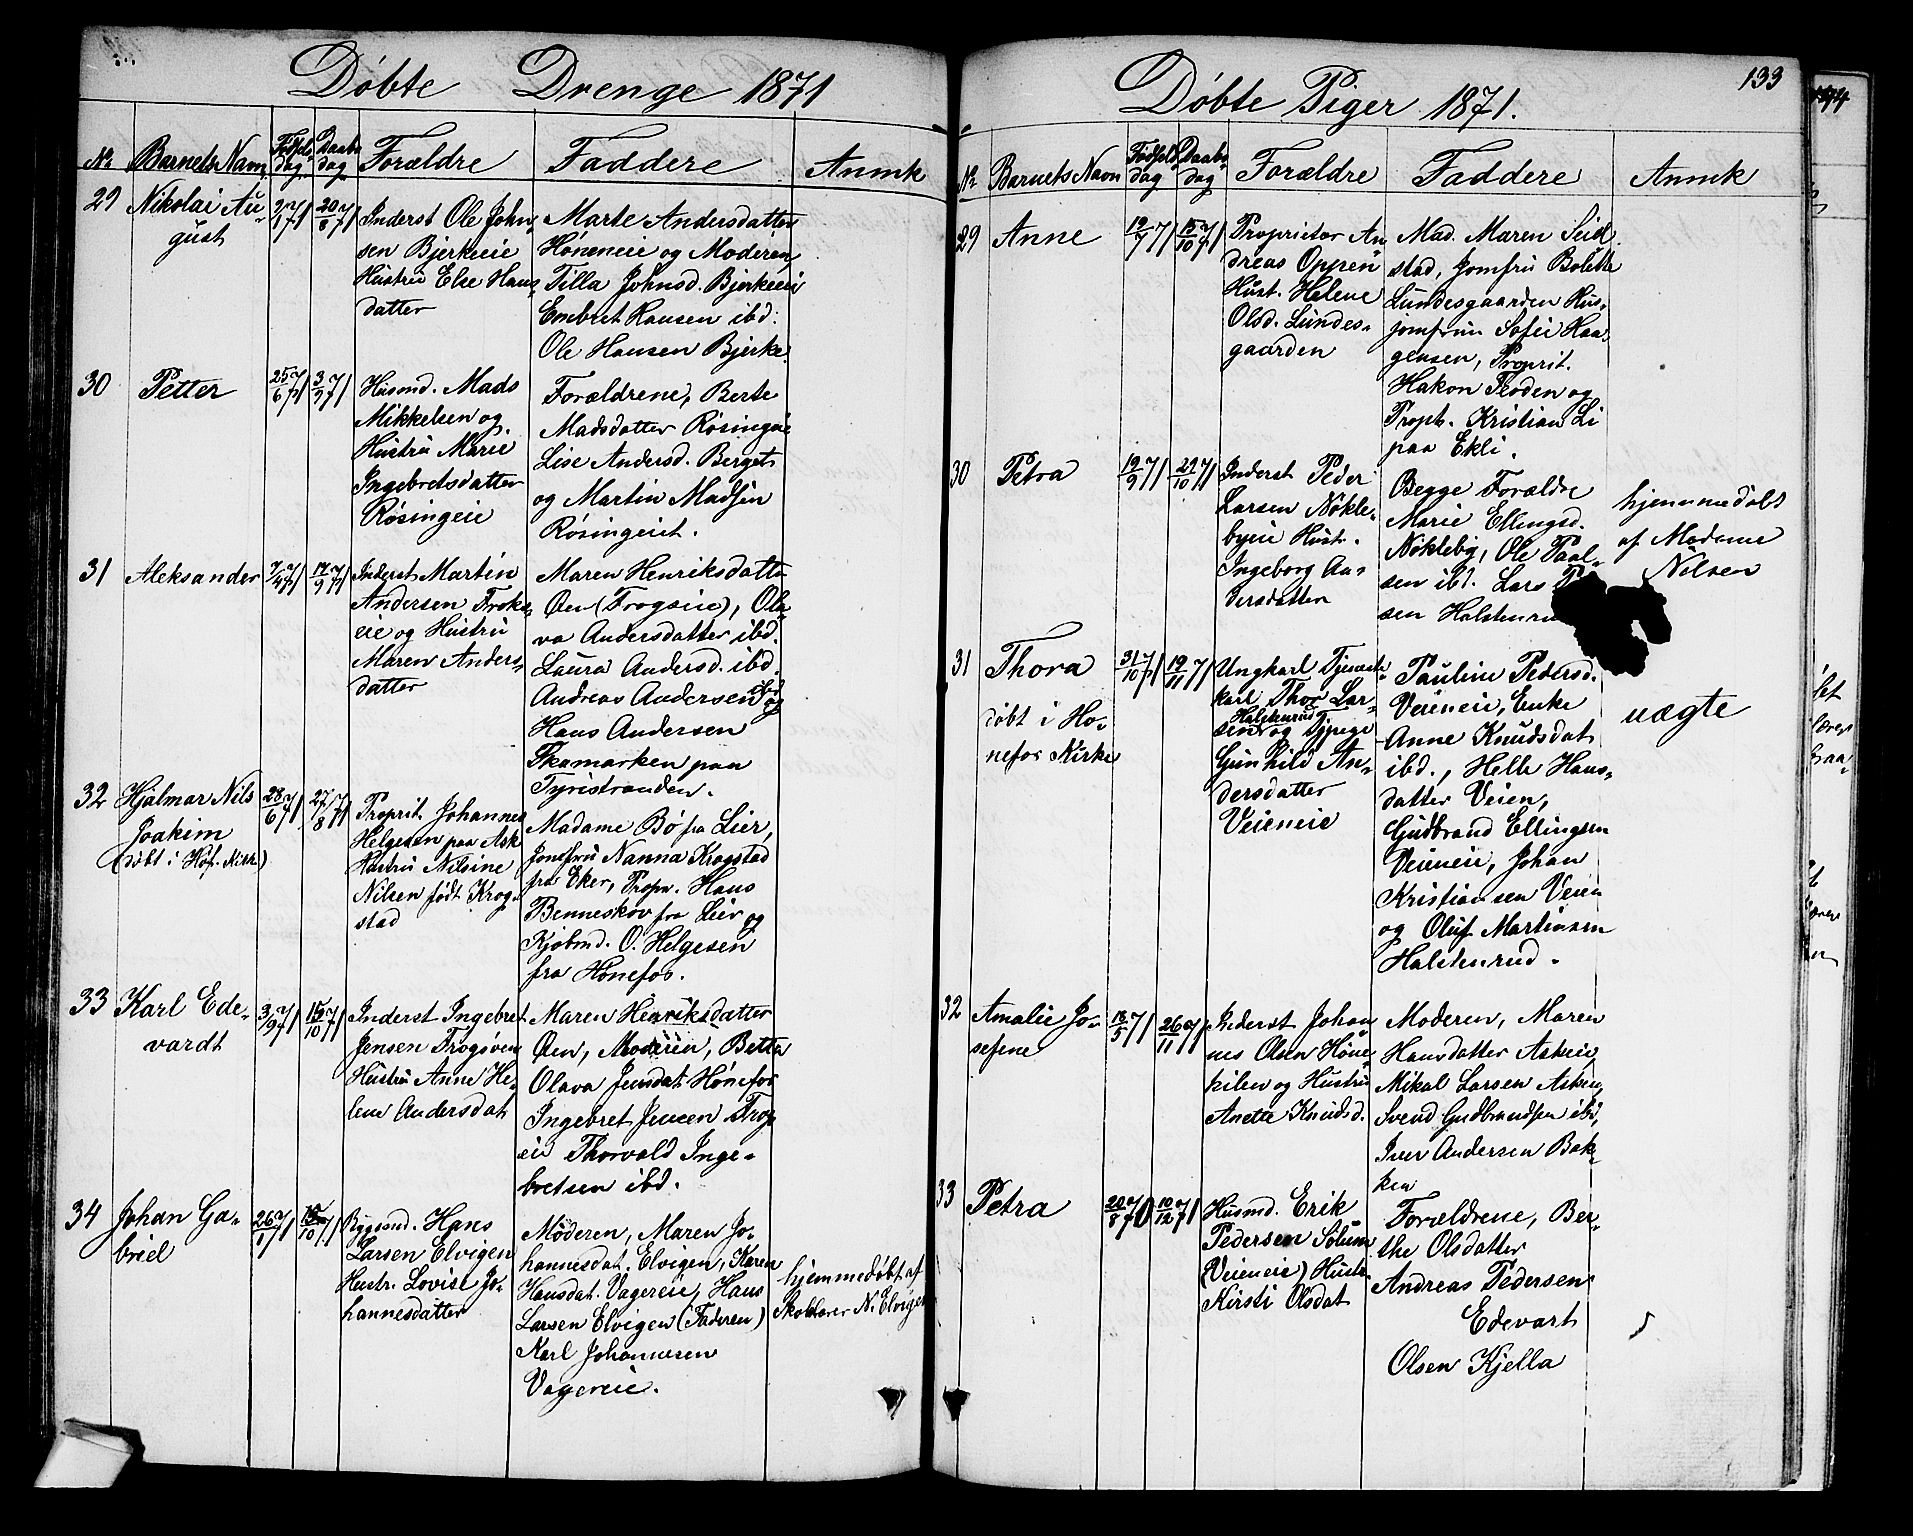 Døbte Drenge 1871
No Barnets Navn Fødsels dag Daabs dag Forældre Faddere Anmk
29 Nikolai Au-
gust
2/1 71 20/8 71
Inderst Ole John-
sen Bjerkeeie
Hustru Else Hans-
datter
Marte Andersdatter
Høneneie og Moderen,
Tilla Johnsd. Bjerkeeie
Embret Hansen ibd.
Ole Hansen Bjerke.
30 Petter
25/6 71 3/9 71
Husmd. Mads
Mikkelsen og
Hustru Marie
Ingebretsdatter
Røsingeie
Forældrene, Berte
Madsdatter Røsingeie
Lise Andersd. Berget
og Martin Madsen
Røsingeiet.
31 Aleksander
7/4 71 17/9 71
Inderst Martin
Andersen Froks-
eie og Hustru
Maren Anders-
datter
Maren Henriksdatter
Øen (Frogseie), Ola-
va Andersdatter ibd.
Laura Andersd. ibd.
Andreas Andersen ibd og
Hans Andersen
Skamarken paa
Tyristranden.
32 Hjalmar Nils
Joakim
(døbt i Høf. Kirk)
28/6 71 27/8 71
Proprit. Johannes
Helgesen paa Ask
Hustru Nilsine
Nilsen født Krog-
stad
Madame Bø fra Lier,
Jomfru Nanna Krogstad
fra Eker, Propr. Hans
Benneskov fra Lier og
Kjøbmd. O. Helgesen
fra Hønefos.
33 Karl Ede-
vardt
3/9 71 15/10 71
Inderst Ingebret
Jensen Frogsøen
Hustru Anne He-
lene Andersdat
Maren Henriksdatter
Øen, Moderen, Betta
Olava Jensdat Hønefos
Ingebret Jensen Frogs-
eie Thorvald Inge-
bretsen ibd.
34 Johan Ga-
briel
26/1 71 15/10 71
Bygmd. Hans
Larsen Elvigen
Hustr. Lovise Jo-
hannesdatter
Moderen, Maren Jo-
hannesdat. Elvigen, Karen
Hansdat. Vagereie, Hans
Larsen Elvigen (Faderen)
Karl Johannesen
Vagereie.
hjemmedøbt af
Skolelærer N. Elvigen
133
Døbte Piger 1871.
No Barnets Navn Fødsels dag Daabs dag Forældre Faddere Anmk
29 Anne
12/7 71 15/10 71
Proprietær An-
dreas Oppen
Hust. Helene
Olsd. Lundes-
gaarden
Mad. Maren Seid-
stad, Jomfru Bolette
Lundesgaarden Hus-
jomfrun Sofie Haa-
gensen, Proprit.
Hakon Floden og
Propt. Kristian Li
paa Ekli.
30 Petra
19/9 71 29/10 71
Inderst Peder
Larsen Nøkle-
byeie Hust.
Ingeborg An-
dersdatter
Begge Forældre
Marie Ellingsd.
Nøkleby, Ole Paal-
sen ibd. Lars
sen Halstenrud
hjemmedøbt
af Madame
Nilsen
31 Thora
døbt i Hø-
nefos Kirke
31/10 71 19/11 71
Ungkarl Tjeneste-
karl Thor Lar-
sen Halstenrud og Tjpige
Gunhild An-
dersdatter
Veieneie
Pauline Pedersd.
Veieneie, Enke
Anne Knudsdat
ibd., Helle Hans-
datter Veien,
Gudbrand Ellingsen
Veieneie, Johan
Kristiansen Veien
og Oluf Martinsen
Halstenrud.
uægte
32 Amalie Jo-
sefine
18/5 71 26/11 71
Inderst Johan-
nes Olsen Høne-
kilen og Hustru
Anette Knudsd.
Moderen, Maren
Hansdatter Askeie,
Mikal Larsen Askeie,
Svend Gudbrandsen ibd,
Iver Andersen Bak-
ken
33 Petra
20/8 70 10/12 71
Husmd. Erik
Pedersen Solum
(Veieneie) Hustr
Kirsti Olsdat
Forældrene, Ber-
the Olsdatter
Andreas Pedersen
Edevart
Olsen Kjella